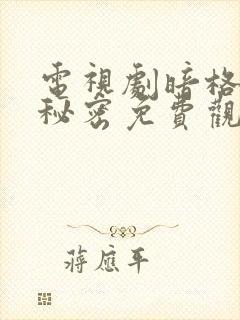 電視劇暗格
秘密免費觀
蔣應平